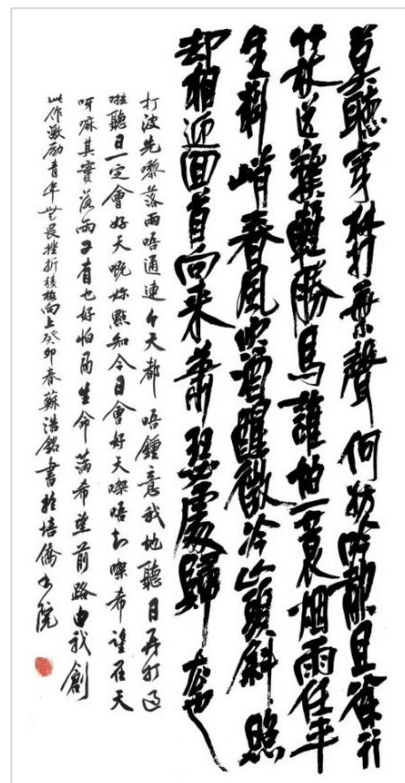 莫聽穿林打葉聲何妨吟嘯且徐行
竹杖芒鞋輕勝馬誰怕一蓑烟雨任平
生料峭春風吹酒醒微冷山頭斜照
却相迎回首向来蕭瑟處歸
打波先嚟落雨唔通連个天都唔鍾意我地聽日再打過
啦聽日一定會好天嘅妳點知今日會好天㗎唔知㗎希望在天
呀嘛其實落雨又有乜好怕生命滿希望前路由我創
此作激勵青年無畏挫折積極向上癸卯春蘇浩銘書於培僑書院